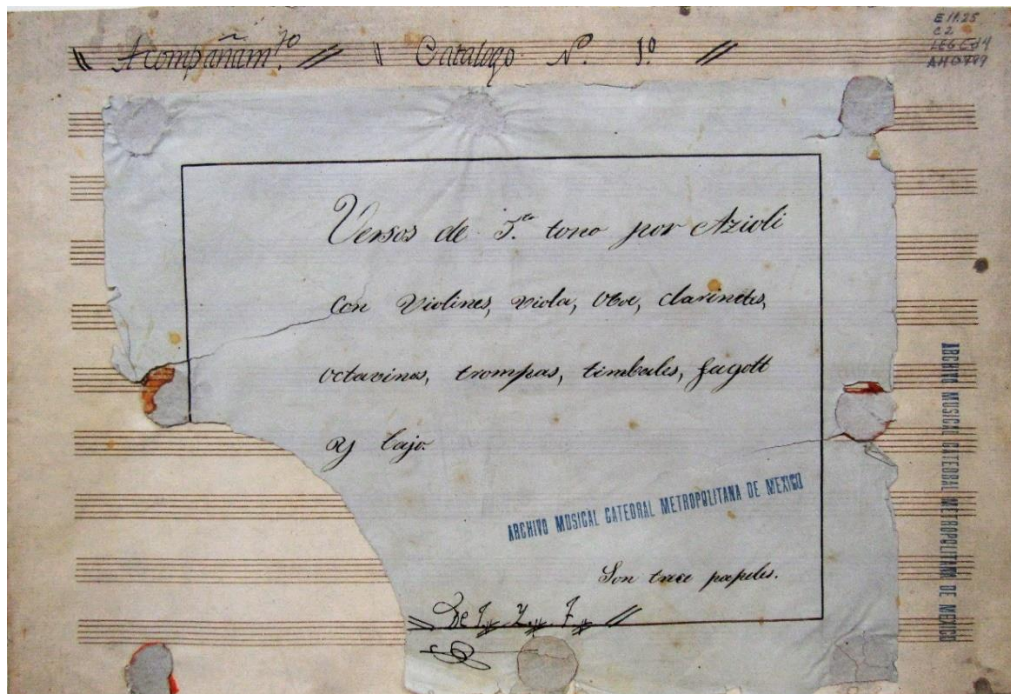 Acompañam.to Catalogo N. 1.o
E11.25
C2
AM0799
Versos de 5.to tono por Azioli
Con Violines, viola, Oboe, clarinetes,
Octavinos, trompas, timbales, fagott
y bajo.
ARCHIVO MUSICAL CATEDRAL METROPOLITANA DE MEXICO
Son trece papeles.
ARCHIVO MUSICAL CATEDRAL METROPOLITANA DE MEXICO